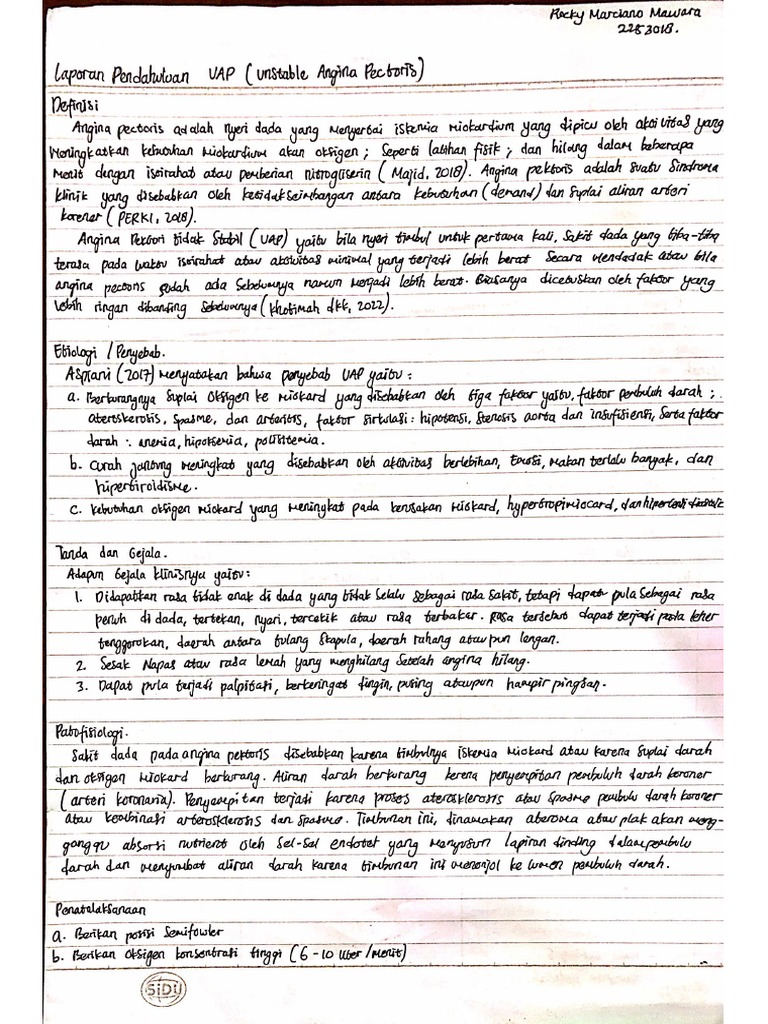 Recky Marciano Mawara
2253018.
Laporan Pendahuluan UAP (Unstable Angina Pectoris)
Definisi
Angina pectoris adalah nyeri dada yang menyertai iskemia miokardium yang dipicu oleh aktivitas yang
meningkatkan kebutuhan miokardium akan oksigen; seperti latihan fisik; dan hilang dalam beberapa
menit dengan istirahat atau pemberian nitrogliserin (Majid, 2018). Angina pektoris adalah suatu sindroma
klinik yang disebabkan oleh ketidakseimbangan antara kebutuhan (demand) dan suplai aliran arteri
koroner (PERKI, 2018).
Angina Pektori tidak stabil (UAP) yaitu bila nyeri timbul untuk pertama kali, sakit dada yang tiba-tiba
terasa pada waktu istirahat atau aktivitas minimal yang terjadi lebih berat secara mendadak atau bila
angina pectoris sudah ada sebelumnya namun menjadi lebih berat. Biasanya dicetuskan oleh faktor yang
lebih ringan dibanding sebelumnya (Khotimah dkk, 2022).
Etiologi / Penyebab.
Aspiani (2017) menyatakan bahwa penyebab UAP yaitu :
a. Berkurangnya suplai oksigen ke miokard yang disebabkan oleh tiga faktor yaitu, faktor pembuluh darah ;
aterosklerosis, spasme, dan arteritis, faktor sirkulasi : hipotensi, stenosis aorta dan insufisiensi, serta faktor
darah : anemia, hipoksemia, polisitemia.
b. Curah jantung meningkat yang disebabkan oleh aktivitas berlebihan, Emosi, makan terlalu banyak, dan
hipertiroidisme.
c. Kebutuhan oksigen miokard yang meningkat pada kerusakan miokard, hypertropimiocard, dan hipertensi diastolik
Tanda dan Gejala.
Adapun Gejala klinisnya yaitu :
1. Didapatkan rasa tidak enak di dada yang tidak selalu sebagai rasa sakit, tetapi dapat pula sebagai rasa
penuh di dada, tertekan, nyeri, tercekik atau rasa terbakar. Rasa tersebut dapat terjadi pada leher
tenggorokan, daerah antara tulang skapula, daerah rahang ataupun lengan.
2. Sesak Napas atau rasa lemah yang menghilang setelah angina hilang.
3. Dapat pula terjadi palpitasi, berkeringat dingin, pusing ataupun hampir pingsan.
Patofisiologi.
Sakit dada pada angina pektoris disebabkan karena timbulnya iskemia miokard atau karena suplai darah
dan oksigen miokard berkurang. Aliran darah berkurang karena penyempitan pembuluh darah koroner
(arteri koronaria). Penyempitan terjadi karena proses aterosklerosis atau spasme pembulu darah koroner
atau kombinasi arterosklerosis dan spasme. Timbunan ini, dinamakan ateroma atau plak akan meng-
ganggu absorsi nutrient oleh sel-sel endotel yang menyusun lapiran dinding dalam pembulu
darah dan menyumbat aliran darah karena timbunan ini menonjol ke lumen pembuluh darah.
Penatalaksanaan
a. Berikan posisi Semifowler
b. Berikan Oksigen konsentrasi tinggi (6 - 10 liter/menit)
SiDU